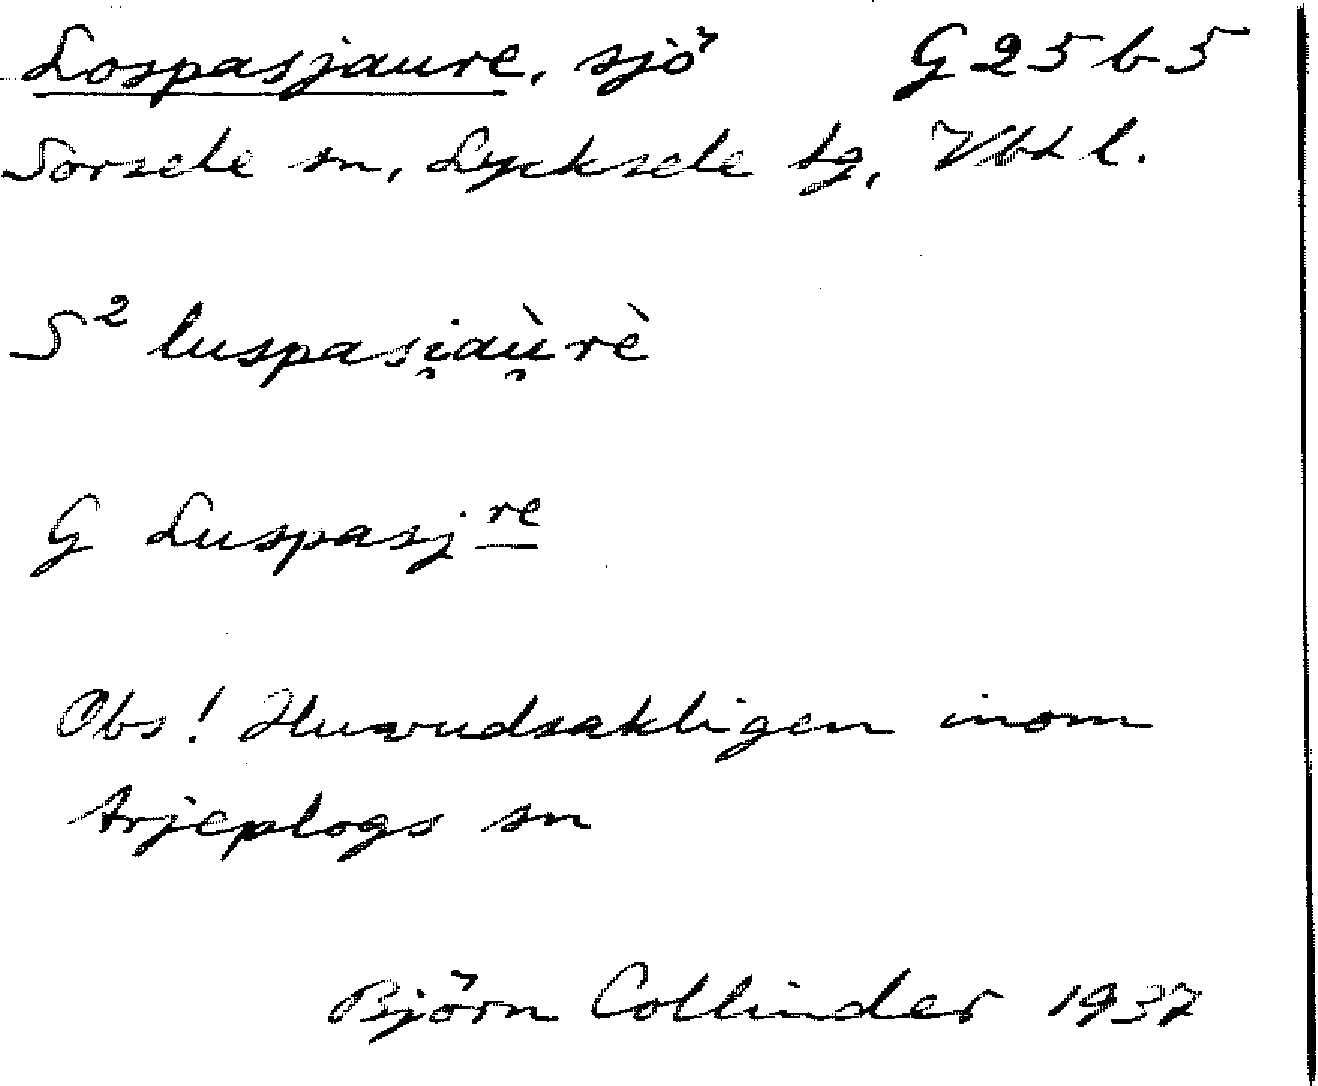 Lospasjaure, sjö G25b5
Sorsele sn, Lycksele tg, Vbtl.
S² luspasi̯aù̯rè
G Luspasjʳᵉ
Obs! Huvudsakligen inom
Arjeplogs sn
Björn Collinder 1937